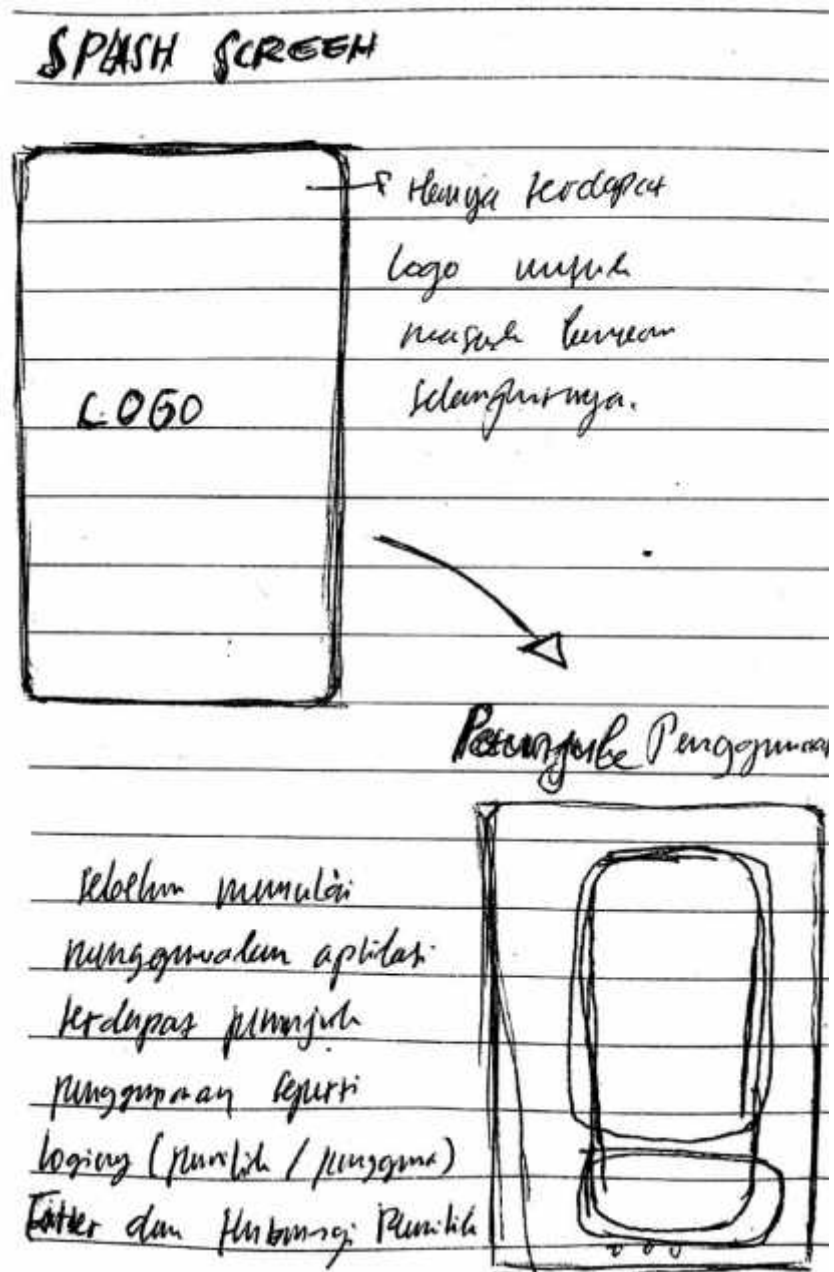 SPLASH SCREEN
Hanya terdapat
logo untuk
masuk
selanjutnya.
LOGO
Penunjuk Penggunaan
sebelum memulai
menggunakan aplikasi
terdapat penunjuk
penggunaan seperti
(pemilik / pengguna)
Filter dan Hubungi Pemilik